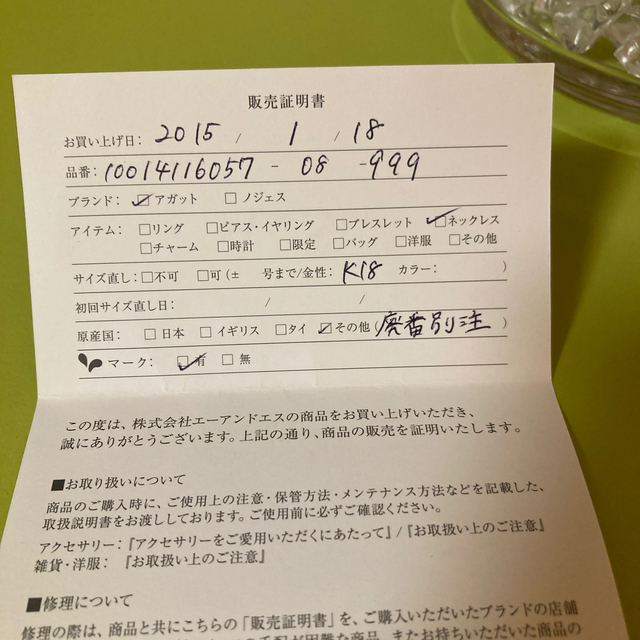 販売証明書
お買い上げ日: 2015 / 1 / 18
品番: 10014116057 - 08 -999
ブランド: ☑アガット □ノジェス
アイテム: □リング □ピアス・イヤリング □ブレスレット ☑ネックレス
□チャーム □時計 □限定 □バッグ □洋服 □その他
サイズ直し: □不可 □可(± 号まで/金性: K18 カラー: )
初回サイズ直し日: / /
原産国: □日本 □イギリス □タイ ☑その他(廃番別注)
マーク: ☑有 □無
この度は、株式会社エーアンドエスの商品をお買い上げいただき、
誠にありがとうございます。上記の通り、商品の販売を証明いたします。
■お取り扱いについて
商品のご購入時に、ご使用上の注意・保管方法・メンテナンス方法などを記載した、
取扱説明書をお渡ししております。ご使用前に必ずご確認ください。
アクセサリー:『アクセサリーをご愛用いただくにあたって』/『お取扱い上のご注意』
雑貨・洋服: 『お取扱い上のご注意』
■修理について
修理の際は、商品と共にこちらの「販売証明書」を、ご購入いただいたブランドの店舗